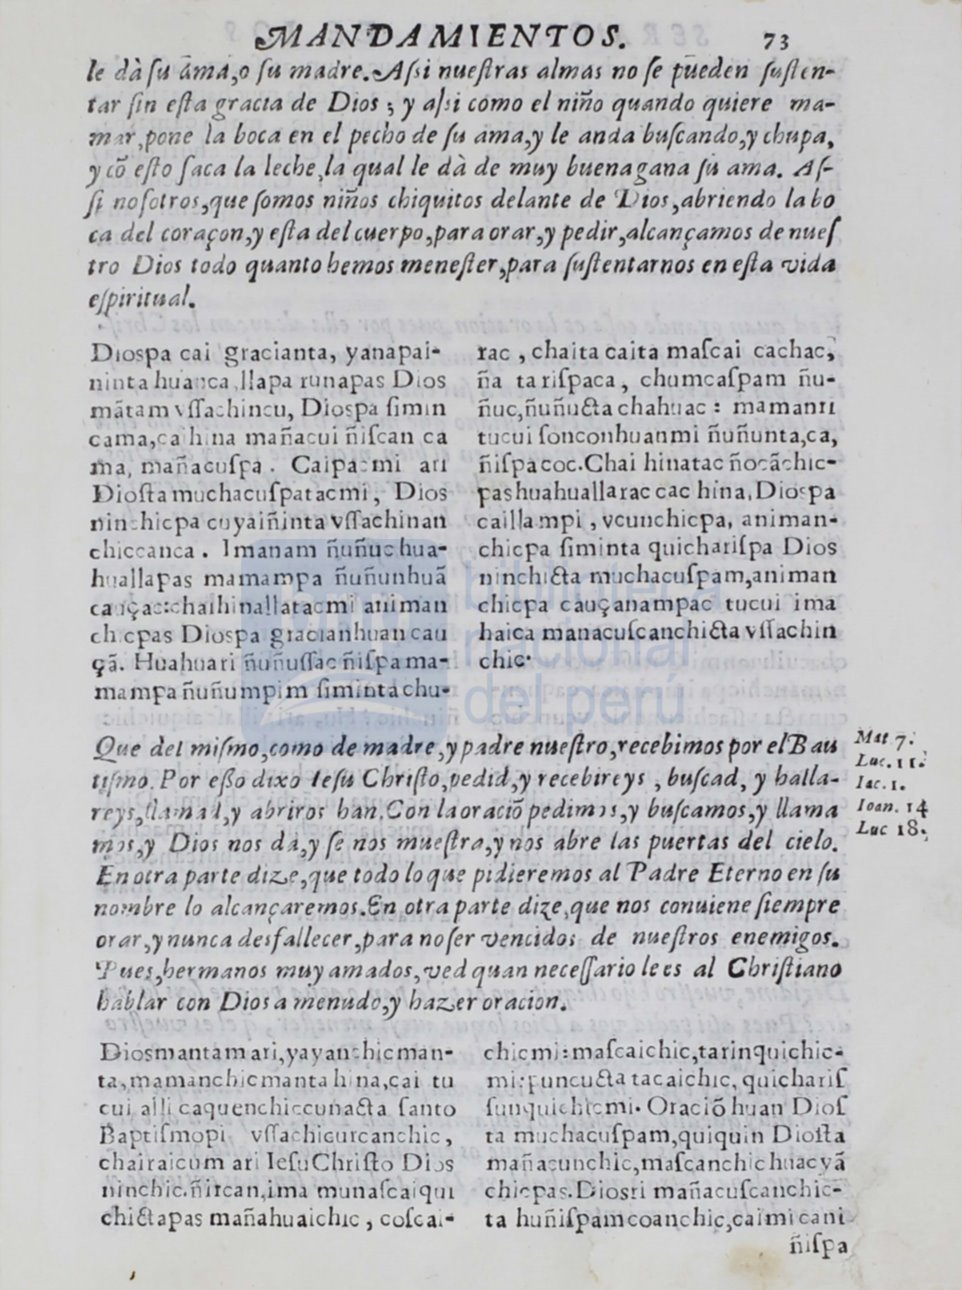 MANDAMIENTOS. 73
le dà ſu ama,o ſu madre. Aſsi nueſtras almas no ſe pueden ſuſten-
tar ſin eſta gracia de Dios ; y aſsi como el niño quando quiere ma-
mar,pone la boca en el pecho de ſu ama,y le anda buſcando,y chupa,
y cõ eſto ſaca la leche,la qual le dà de muy buena gana ſu ama. Aſ-
ſi noſotros,que ſomos niños chiquitos delante de Dios,abriendo la bo
ca del coraçon,y eſta del cuerpo,para orar,y pedir,alcançamos de nueſ
tro Dios todo quanto hemos meneſter,para ſuſtentarnos en eſta vida
eſpiritual.
Diospa cai gracianta, yanapai-
ninta huanca,llapa runapas Dios
mãtam vſſachincu, Diospa ſimin
cama,ca hina mañacui ñiſcan ca
ma, mañacuſpa. Caipacmi ari
Dioſta muchacuſpatacmi, Dios
ninchicpa cuyaiñinta vſſachinan
chiccanca. Imanam ñuñuc hua-
huallapas mamampa ñuñunhuã
cauçac:chaihinallatacmi animan
chicpas Diospa gracianhuan cau
çã. Huahuari ñuñuſſac ñiſpa ma-
mampa ñuñumpim ſimintachu-
rac , chaita caita maſcai cachac,
ña tariſpaca, chumcaſpam ñu-
ñuc,ñuñucta chahuac : mamanri
tucui ſonconhuanmi ñuñunta,ca,
ñiſpa coc.Chai hinatac ñocãchic-
pas huahuallarac cac hina,Diospa
caillampi , vcunchicpa, animan-
chicpa ſiminta quichariſpa Dios
ninchicta muchacuſpam,animan
chicpa cauçanampac tucui ima
haica manacuſcanchicta vſſachin
chic.
Que del miſmo,como de madre,y padre nueſtro,recebimos por el Bau
tiſmo. Por eſſo dixo Ieſu Chriſto,pedid,y recebireys , buſcad, y halla-
reys,llamad,y abriros han.Con la oraciõ pedimos,y buſcamos,y llama
mos,y Dios nos dà,y ſe nos mueſtra,y nos abre las puertas del cielo.
En otra parte dize,que todo lo que pidieremos al Padre Eterno en ſu
nombre lo alcançaremos.En otra parte dize,que nos conuiene ſiempre
orar,y nunca desfallecer,para no ſer vencidos de nueſtros enemigos.
Pues,hermanos muy amados,ved quan neceſſario le es al Chriſtiano
hablar con Dios a menudo,y hazer oracion.
Mat 7.
Luc. 11.
Iac. 1.
Ioan. 14
Luc 18.
Diosmantam ari,yayanchicman-
ta,mamanchicmanta hina,cai tu
cui alli caquenchiccunacta ſanto
Baptiſmopi vſſachicurcanchic,
chairaicum ari Ieſu Chriſto Dios
ninchic.ñircan,ima munaſcaiqui
chictapas mañahuaichic , coſcai-
chicmi:maſcaichic,tarinquichic-
mi:puncucta tacaichic, quichariſ
ſunquichicmi. Oraciõ huan Dioſ
ta muchacuſpam,quiquin Dioſta
mañacunchic,maſcanchic huacyã
chicpas.Dioſri mañacuſcanchic-
ta huñiſpam coanchic,caimi cani
ñiſpa
biblioteca
nacional
del perú